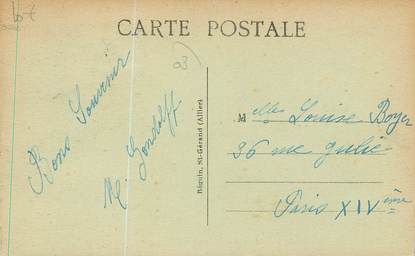 CARTE POSTALE
10 €
03
Bons Souvenir
M. Gondolff
Bignin, St-Gérand (Allier)
Melle Louise Boyer
36 rue Julie
Paris XIVème